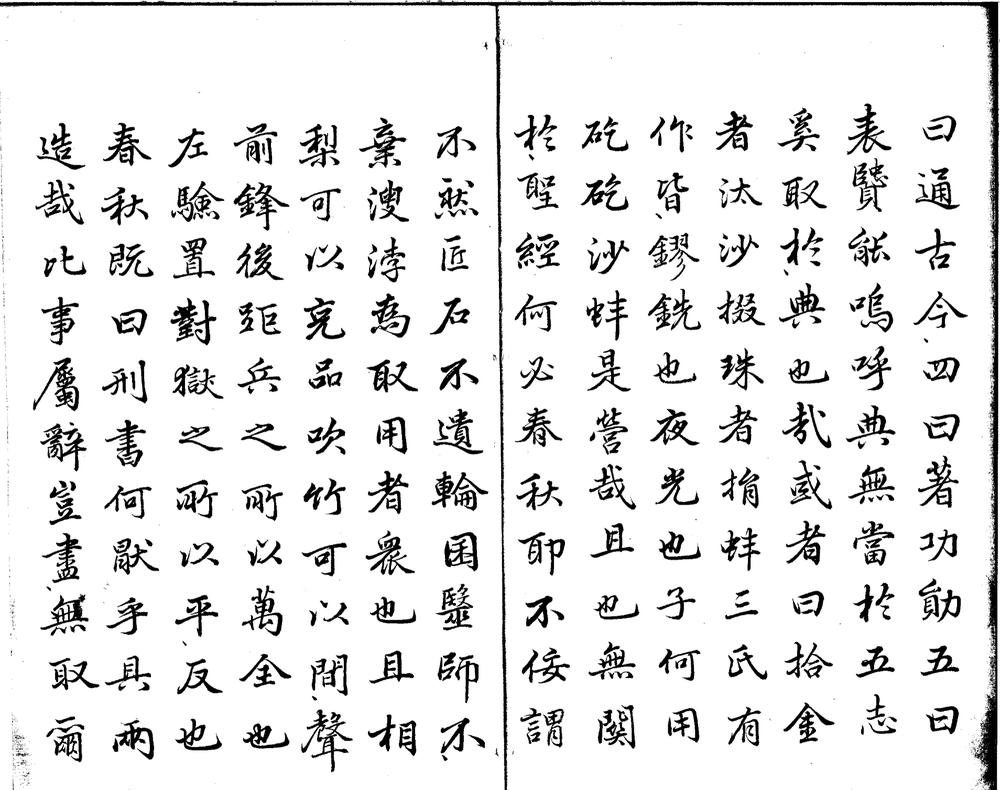 曰通古今四曰著功勛五曰
表賢能嗚呼典無當於五志
奚取於典也哉或者曰拾金
者汰沙掇珠者捐蚌三氏有
作皆鏐銑也夜光也子何用
矻矻沙蚌是營哉且也無關
於聖經何必春秋耶不佞謂
不然匠石不遺輪囷毉師不
棄溲浡為取用者衆也且相
梨可以充品吹竹可以間聲
前鋒後距兵之所以萬全也
左驗置對獄之所以平反也
春秋既曰刑書何猒乎具兩
造哉比事屬辭豈盡無取爾